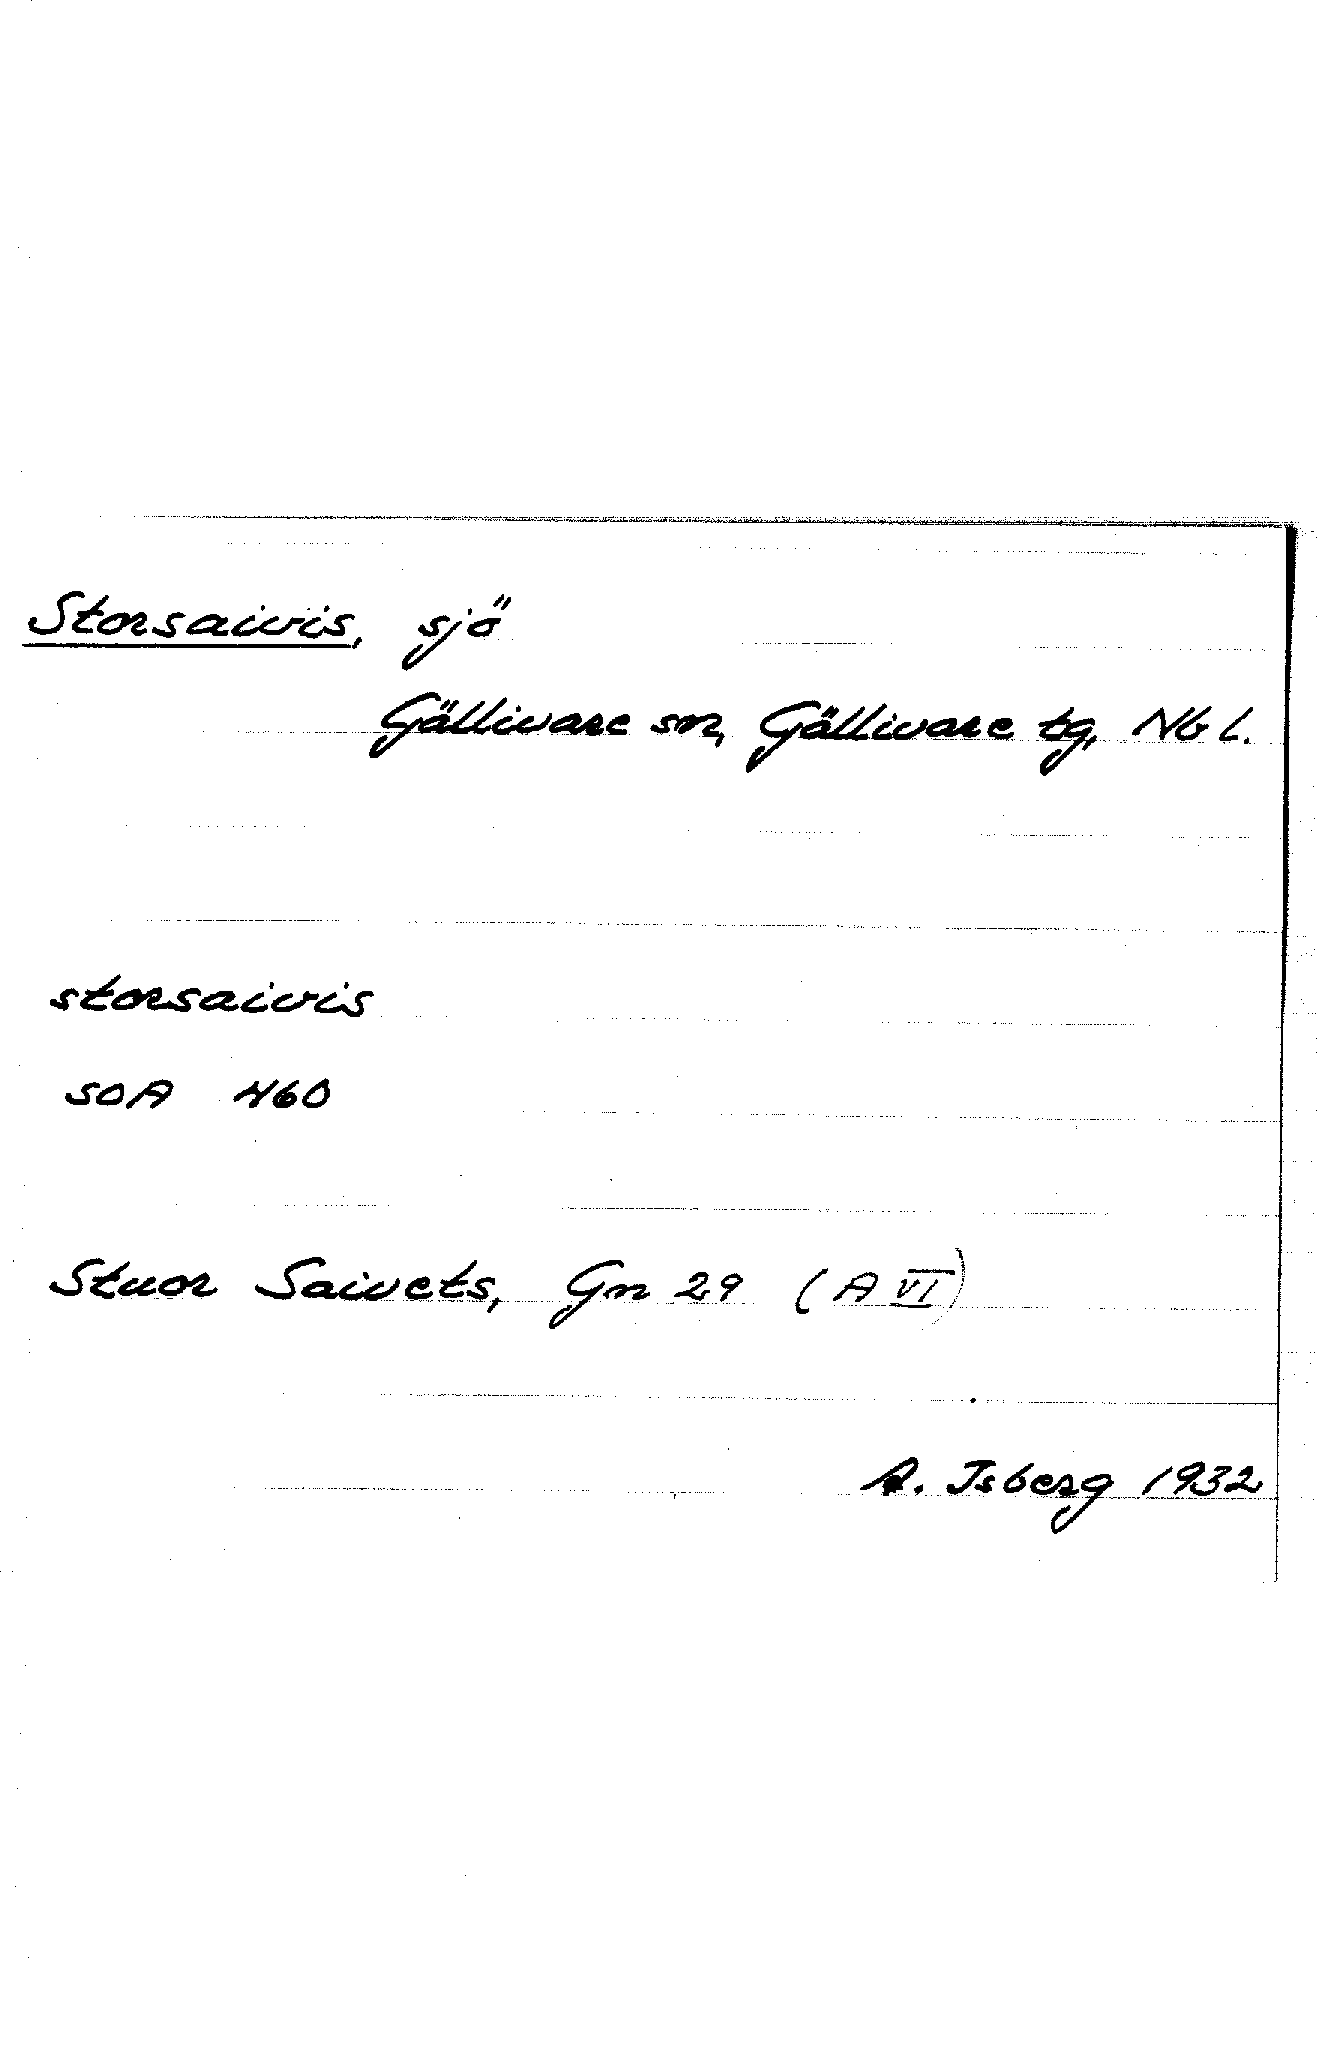 Storsaivis, sjö
Gällivare sn, Gällivare tg, Nb l.
storsaivis
SOA N60
Stuor Saivets, Gn 29 (A VI)
A. Isberg 1932